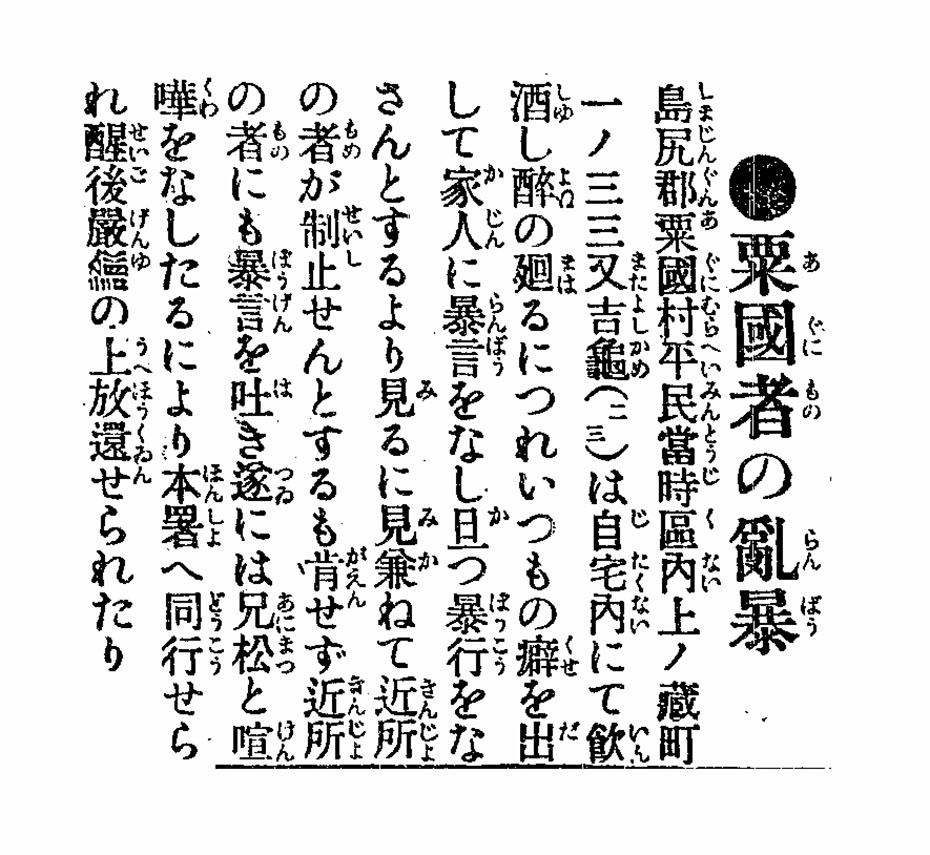 ●粟國者の亂暴
島尻郡粟國村平民當時區內上ノ藏町
一ノ三三又吉龜(二三)は自宅內にて飮
酒し醉の廻るにつれいつもの癖を出
して家人に暴言をなし且つ暴行をな
さんとするより見るに見兼ねて近所
の者が制止せんとするも肯せず近所
の者にも暴言を吐き遂には兄松と喧
嘩をなしたるにより本署へ同行せら
れ醒後嚴諭の上放還せられたり